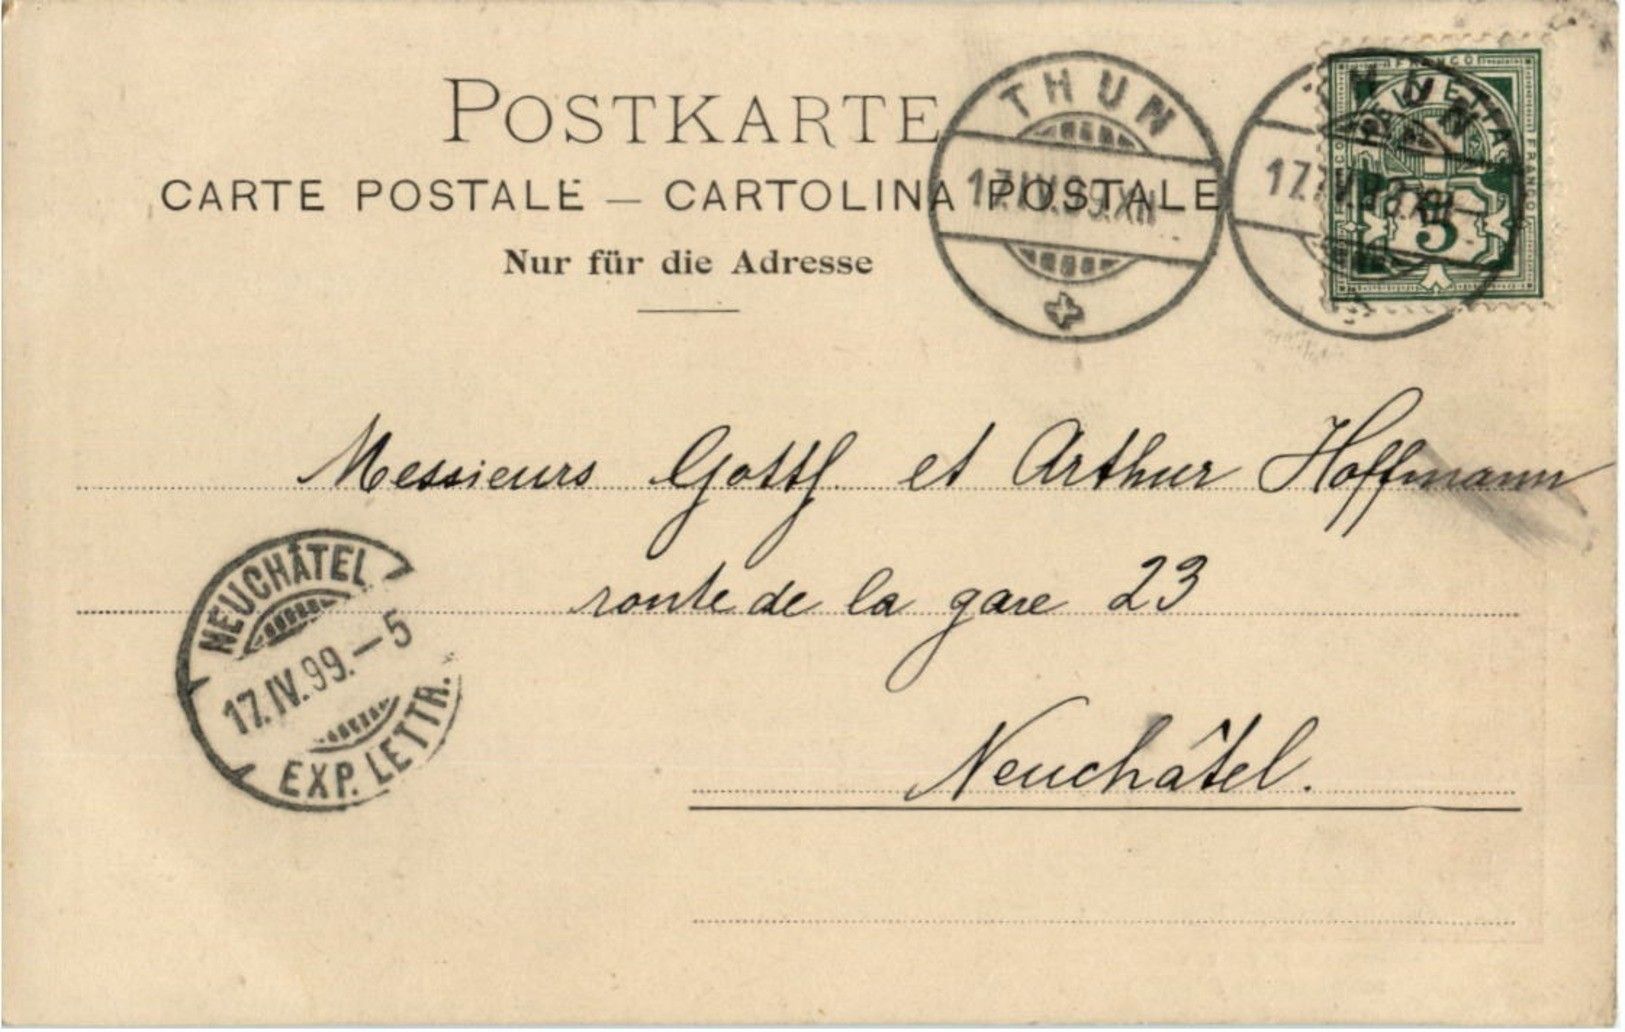 POSTKARTE
CARTE POSTALE — CARTOLINA POSTALE
Nur für die Adresse
THUN
17.IV.99.XII
THUN
FRANCO
HELVETIA
FRANCO
5
Messieurs Gottf. et Arthur Hoffmann
route de la gare 23
Neuchâtel.
NEUCHÂTEL
17.IV.99.–5
EXP. LETTR.